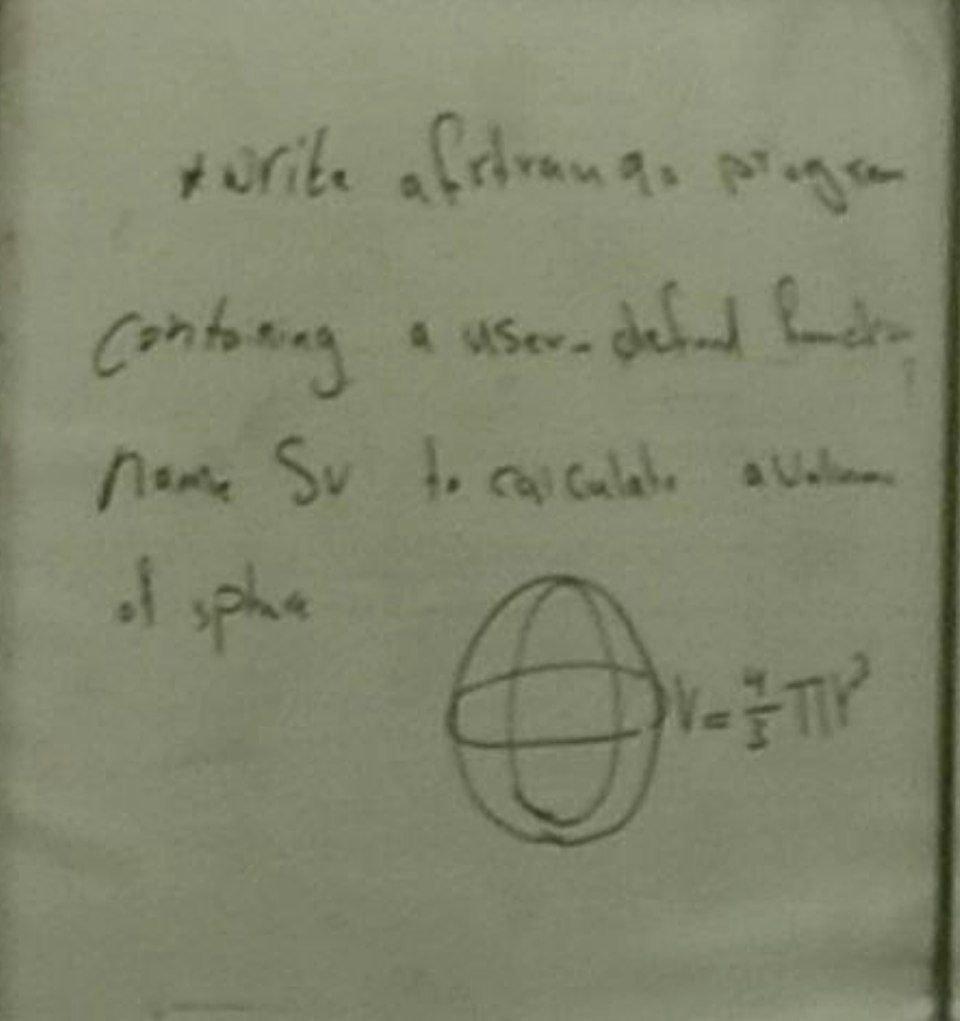 *write a fortran 90 program
containing a user-defined function
name Sv to calculate a volume
of sphere
V = 4/3 πr³